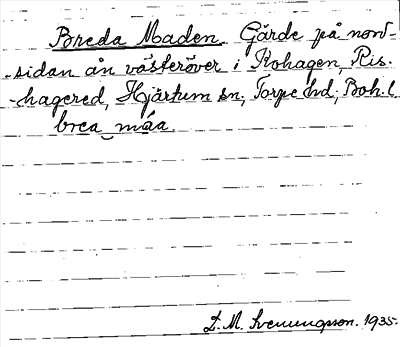 Breda Maden. Gärde på nord-
sidan ån västeröver i Kohagen, Ris-
hagered, Hjärtum sn, Torpe hd, Boh. l.
brea_måa.
L. M. Svenungsson. 1935.